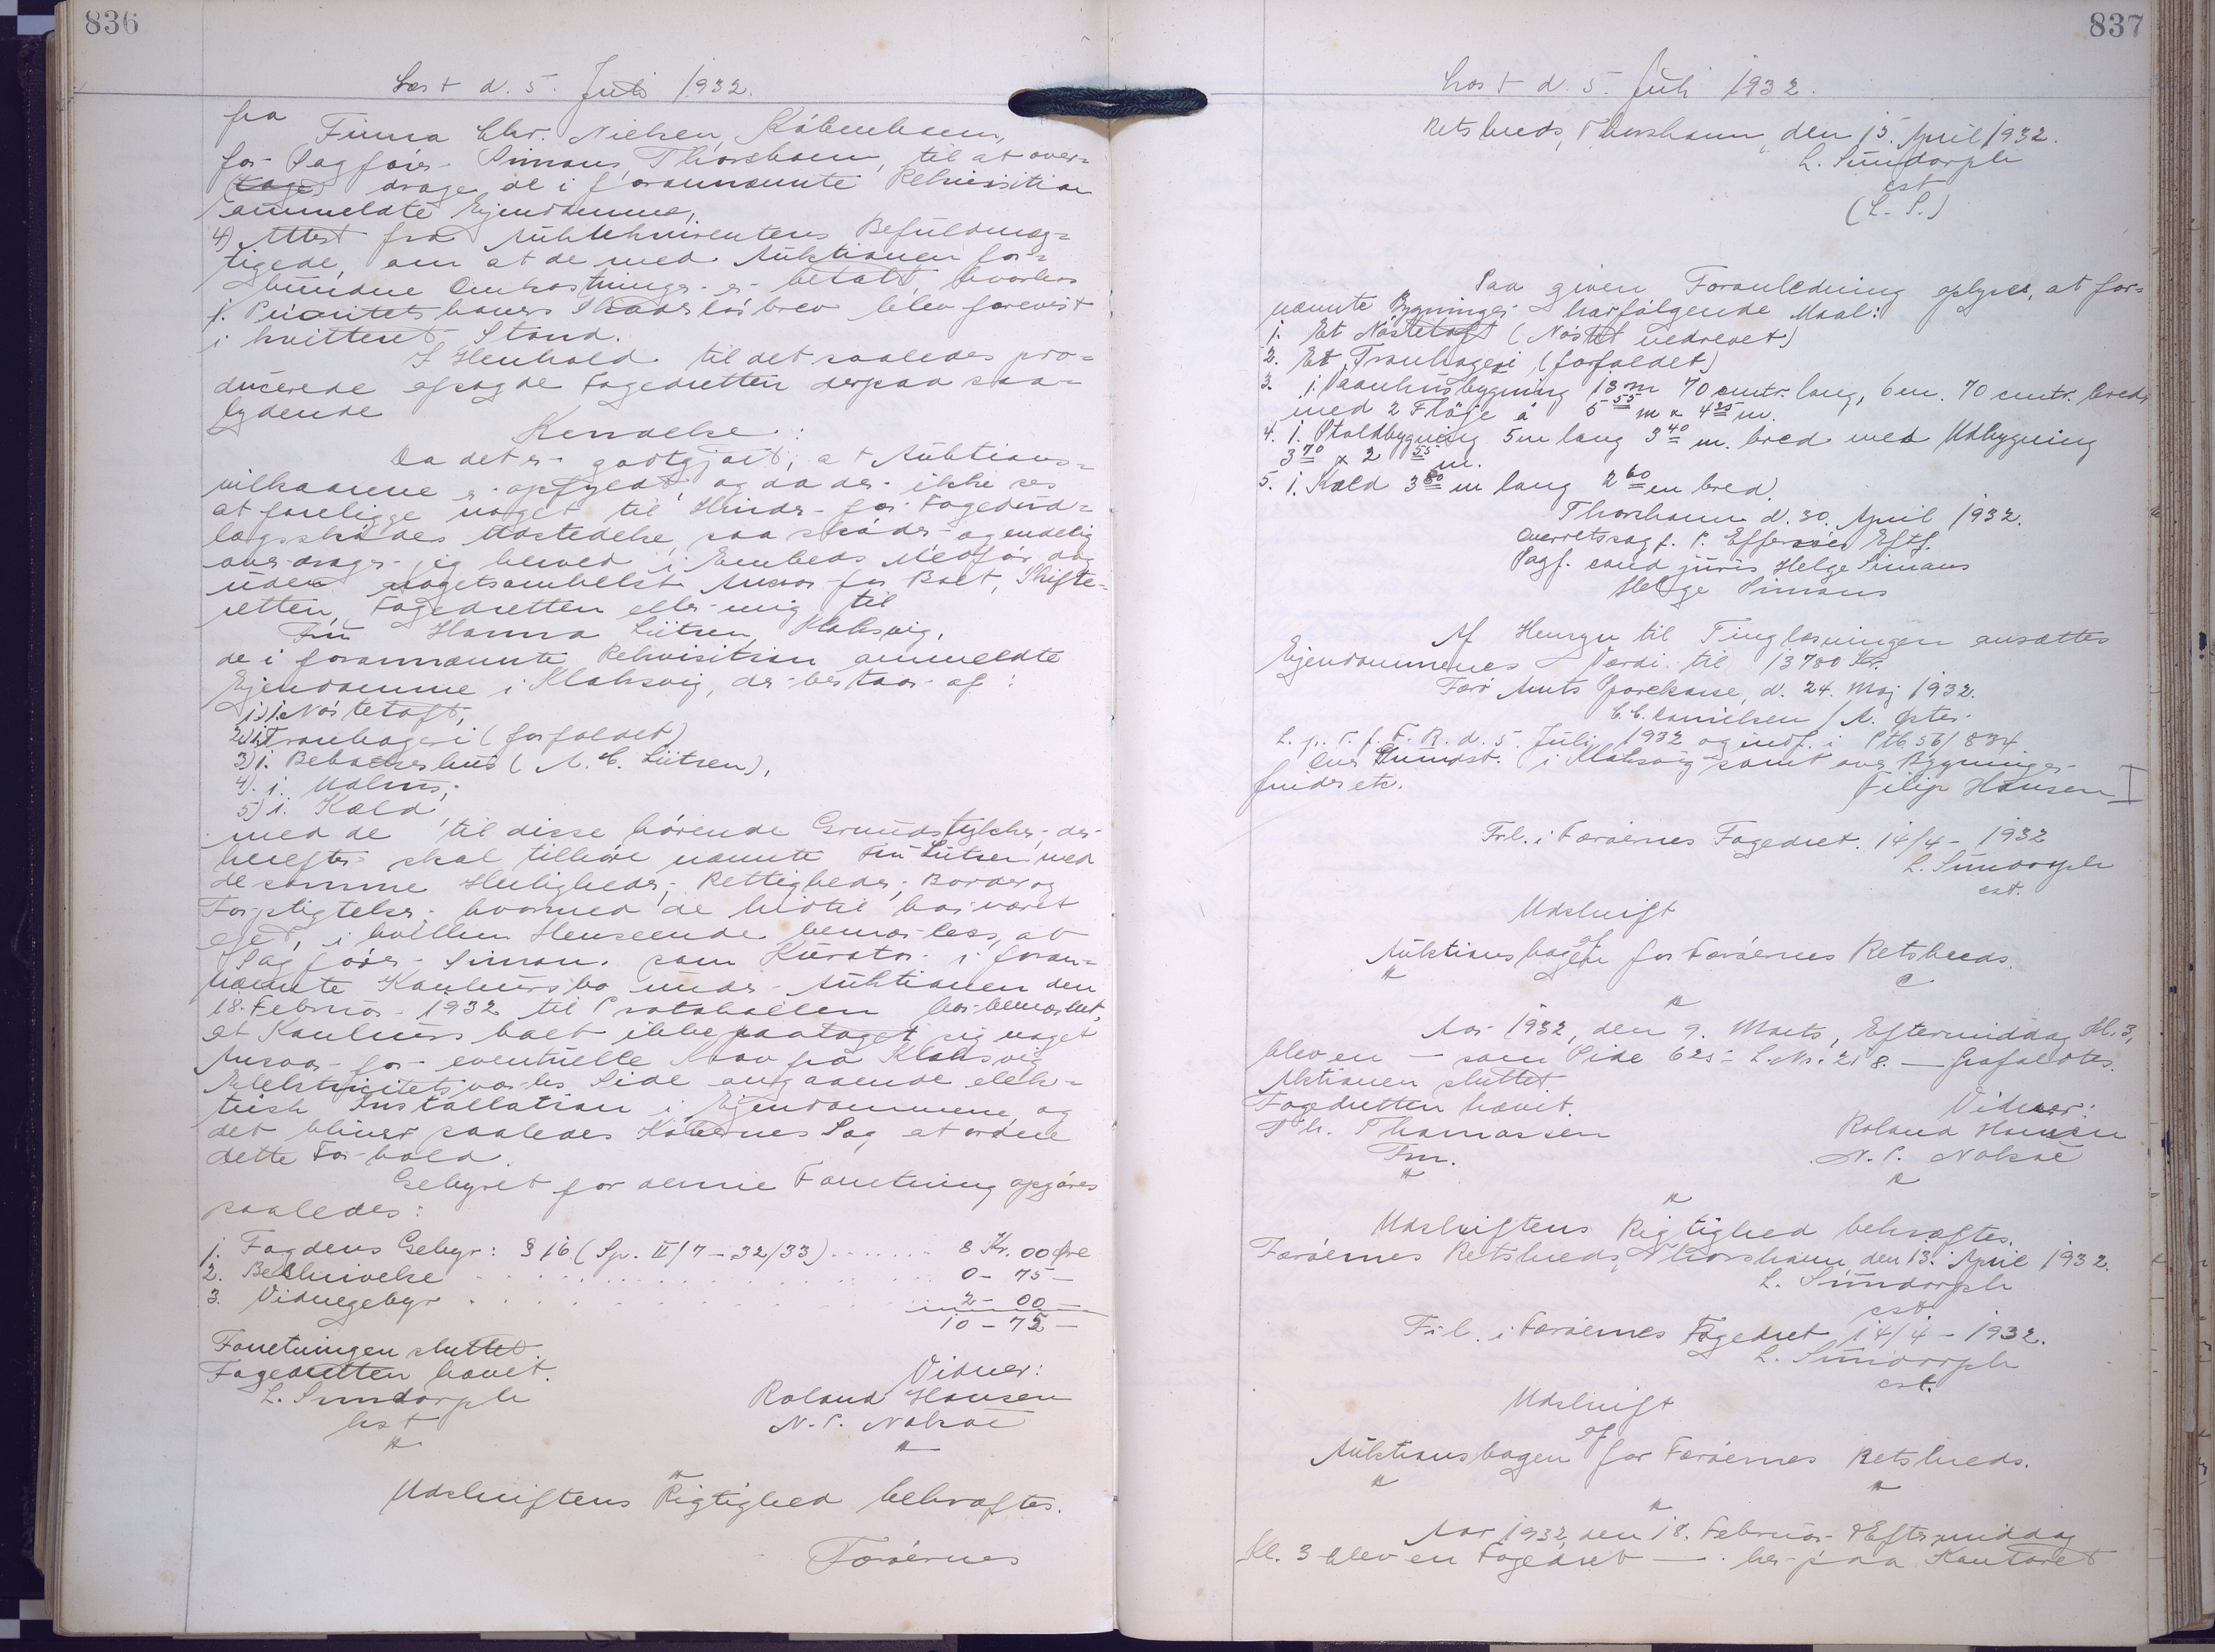 836
Læst d. 5. Juli 1932.
fra Firma Chr. Nielsen, København,
for Sagfører Simons, Thorshavn, til at over-
tage drage de i forannævnte Rekvisition
anmeldte Ejendomme,
4) Attest fra Auktekvirentens Befuldmæg-
tigede, om at de med Auktionen for-
bundne Omkostninger er betalt, hvorhos
1. Prioritetshavers Skadesløsbrev blev forevist
i kvitteret Stand.
I Henhold til det saaledes pro-
ducerede afsagde Fogedretten derpaa saa-
lydende
Kendelse:
Da det er godtgjort, at Auktions-
vilkaarene er opfyldt, og da der ikke ses
at foreligge noget til Hinder for Fogedud-
lægsskødes Udstedelse, saa skøder og endelig
overdrager jeg herved i Embeds Medfør dog
uden nogetsomhelst Ansvar for Boet, Skifte-
retten, Fogedretten eller mig til
Fru Hanna Lützen, Klaksvig,
de i forannævnte Rekvisition anmeldte
Ejendomme i Klaksvig, der bestaar af:
1) 1. Nøstetoft,
2) 1. Tranbageri (forfaldet)
3) 1. Beboelseshus (A. C. Lützen),
4) 1. Udhus,
5) 1. Kæld
med de til disse hørende Grundstykker, der
herefter skal tilhøre nævnte Fru Lützen med
de samme Herligheder, Rettigheder, Byrder og
Forpligtelser, hvormed de hidtil har været
ejet, i hvilken Henseende bemærkes, at
Sagfører Simons som Kurator i foran-
nævnte Konkursbo under Auktionen den
18. Februar 1932 til Protokollen har bemærket,
at Konkursboet ikke paataget sig noget
Ansvar for eventuelle Krav fra Klaksvig
Elektricitetsværks Side angaaende elek-
trisk Installation i Ejendommene, og
det bliver saaledes Købernes Sag at ordne
dette Forhold.
Gebyret for denne Forretning opgøres
saaledes:
1. Fogdens Gebyr: § 16 (Sp. II/7-32/33) ...... 8 Kr. 00 Øre
2. Beskrivelse ...... 0 - 75 -
3. Vidnegebyr ...... 2 - 00 -
10 - 75 -
Forretningen sluttet
Fogedretten hævet.
Vidner:
L. Sundorph Roland Hansen
cst N. P. Nolsøe
Udskriftens Rigtighed bekræftes.
Færøernes
837
Læst d. 5. Juli 1932.
Retskreds, Thorshavn, den 15. April 1932.
L. Sundorph
cst
(L. S.)
Paa given Foranledning oplyses, at for-
nævnte Bygninger har følgende Maal:
1. Et Nøstetoft (Nøstet nedrevet)
2. Et Tranbageri (forfaldet)
3. 1. Vaanhusbygning 13 m 70 cmtr. lang, 6 m. 70 cmtr. bred,
med 2 Fløje á 5 55 m x 4 25 m.
4. 1. Staldbygning 5 m lang 3 40 m. bred med Udbygning
3 70 x 2 55 m.
5. 1. Kæld 3 80 m lang 2 60 m bred.
Thorshavn d. 30. April 1932.
Overretssagf. P. Effersøes Eftf.
Sagf. cand juris Helge Simons
Helge Simons
Af Hensyn til Tinglæsningen ansættes
Ejendommenes Værdi til 13780 Kr.
Færø Amts Sparekasse, d. 24. Maj 1932.
C. C. Danielsen / A. Øster.
L. p. T. f. F. R. d. 5. Juli 1932 og indf. i Ptb. 56/834
over Grundst. i Klaksvig samt over Bygninger
findes etc. Filip Hansen
Frl. i Færøernes Fogedret. 14/4 - 1932
L. Sundorph
cst.
Udskrift
af
Auktionsbogen for Færøernes Retskreds.
Aar 1932, den 9. Marts, Eftermiddag Kl. 3,
blev en — som Side 625 - L. Nr. 218. — frafaldtes.
Auktionen sluttet
Fogedretten hævet. Vidner:
Th. Thomassen Roland Hansen
Fm. N. P. Nolsøe
Udskriftens Rigtighed bekræftes.
Færøernes Retskreds, Thorshavn, den 13. April 1932.
L. Sundorph
cst
Frl. i Færøernes Fogedret 14/4 - 1932.
L. Sundorph
cst.
Udskrift
af
Auktionsbogen for Færøernes Retskreds.
Aar 1932, den 18. Februar Eftermiddag
Kl. 3 blev en Fogedret — her paa Kontoret